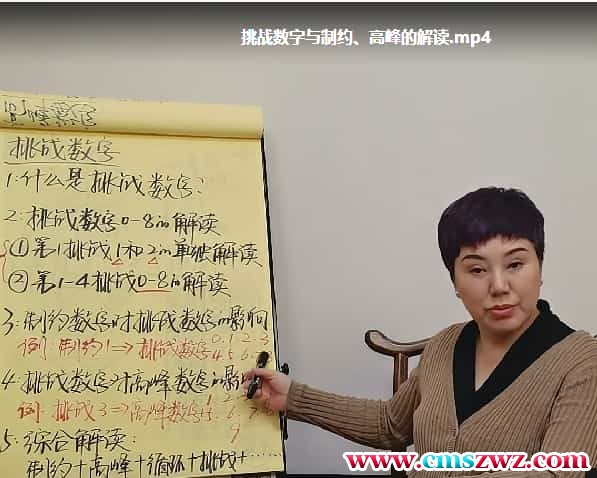 挑战数字与制约、高峰的解读.mp4
挑战数字
1:什么是挑战数字?
2:挑战数字0-8的解读
①第1挑战1和2的单独解读
②第1-4挑战0-8的解读
3:制约数字对挑战数字的影响
例:制约1⇒挑战数字0.1.2.3
4.5.6.
4:挑战数字对高峰数字的影
例:挑战3⇒高峰数字
9
5:综合解读:
制约+高峰+循环+挑战+……
www.cmszwz.com